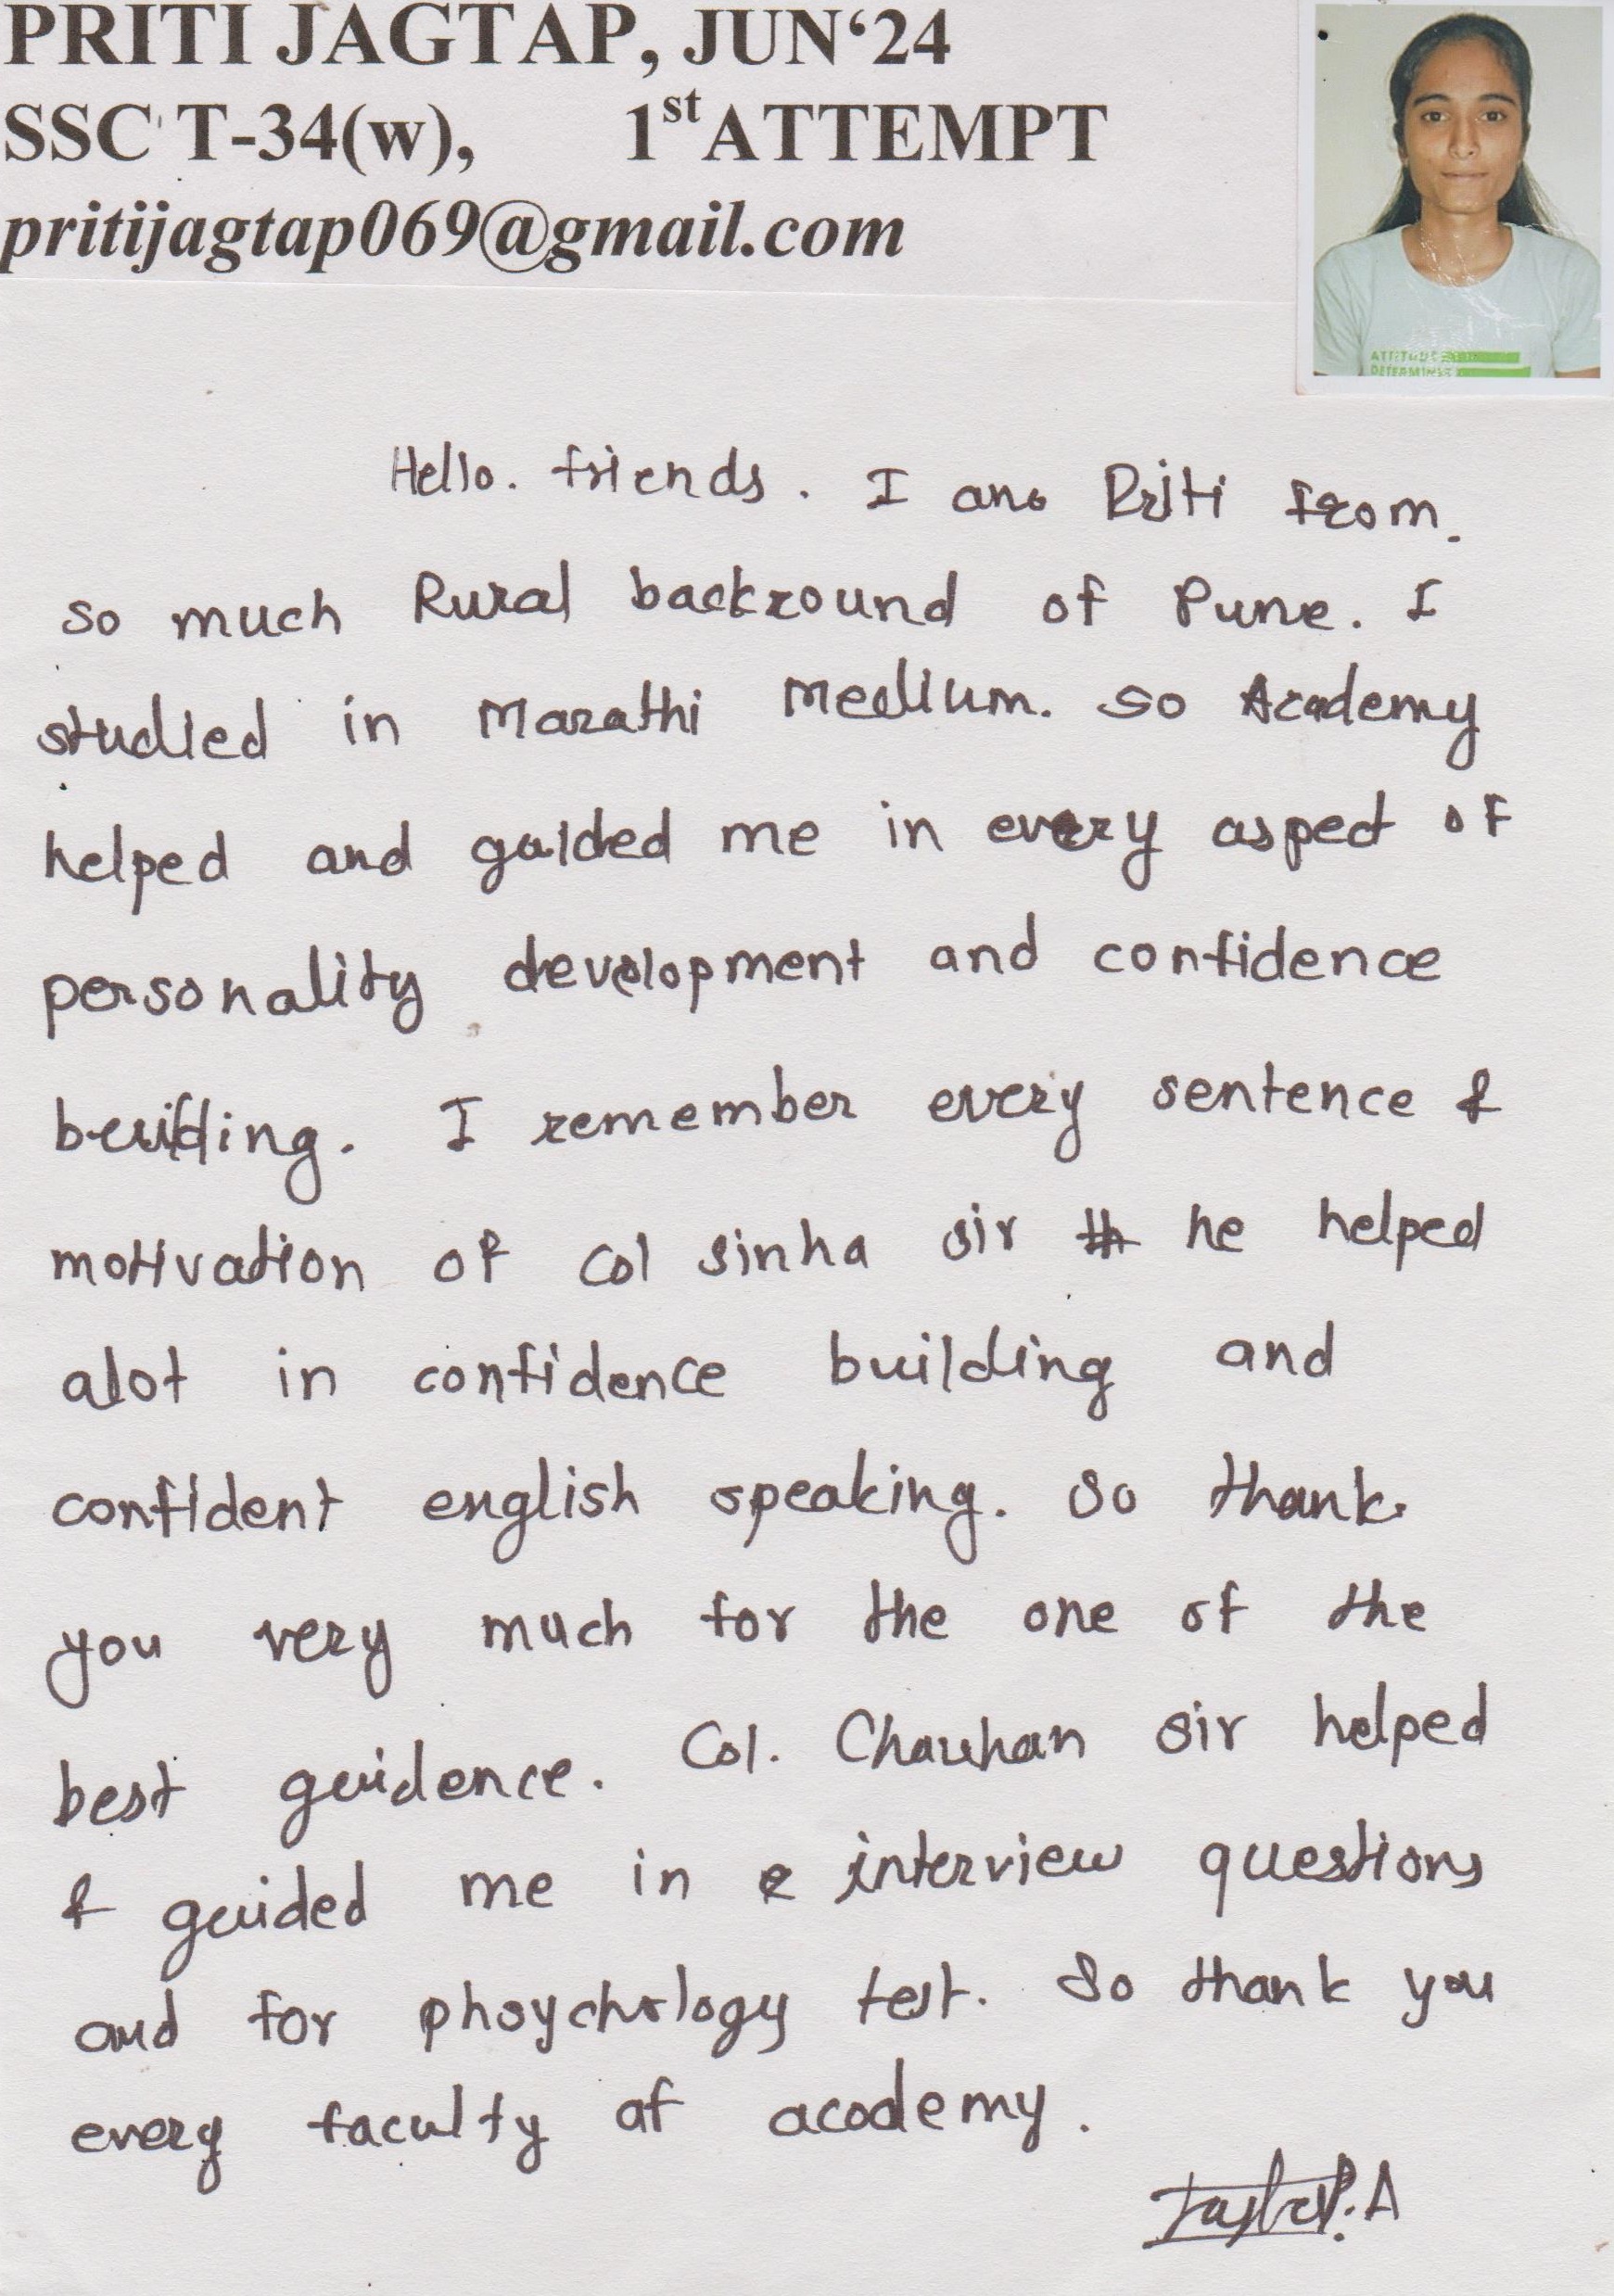 PRITI JAGTAP, JUN‘24
SSC T-34(w), 1st ATTEMPT
pritijagtap069@gmail.com
ATTITUDE
DETERMINES
Hello. friends. I am Priti from.
so much Rural backround of Pune. I
studied in Marathi Medium. so Academy
helped and guided me in every aspect of
personality development and confidence
building. I remember every sentence &
motivation of Col sinha sir he helped
alot in confidence building and
confident english speaking. so thank
you very much for the one of the
best guidence. Col. Chauhan sir helped
& guided me in interview questions
and for phsychology test. So thank you
every faculty of academy.
P.A